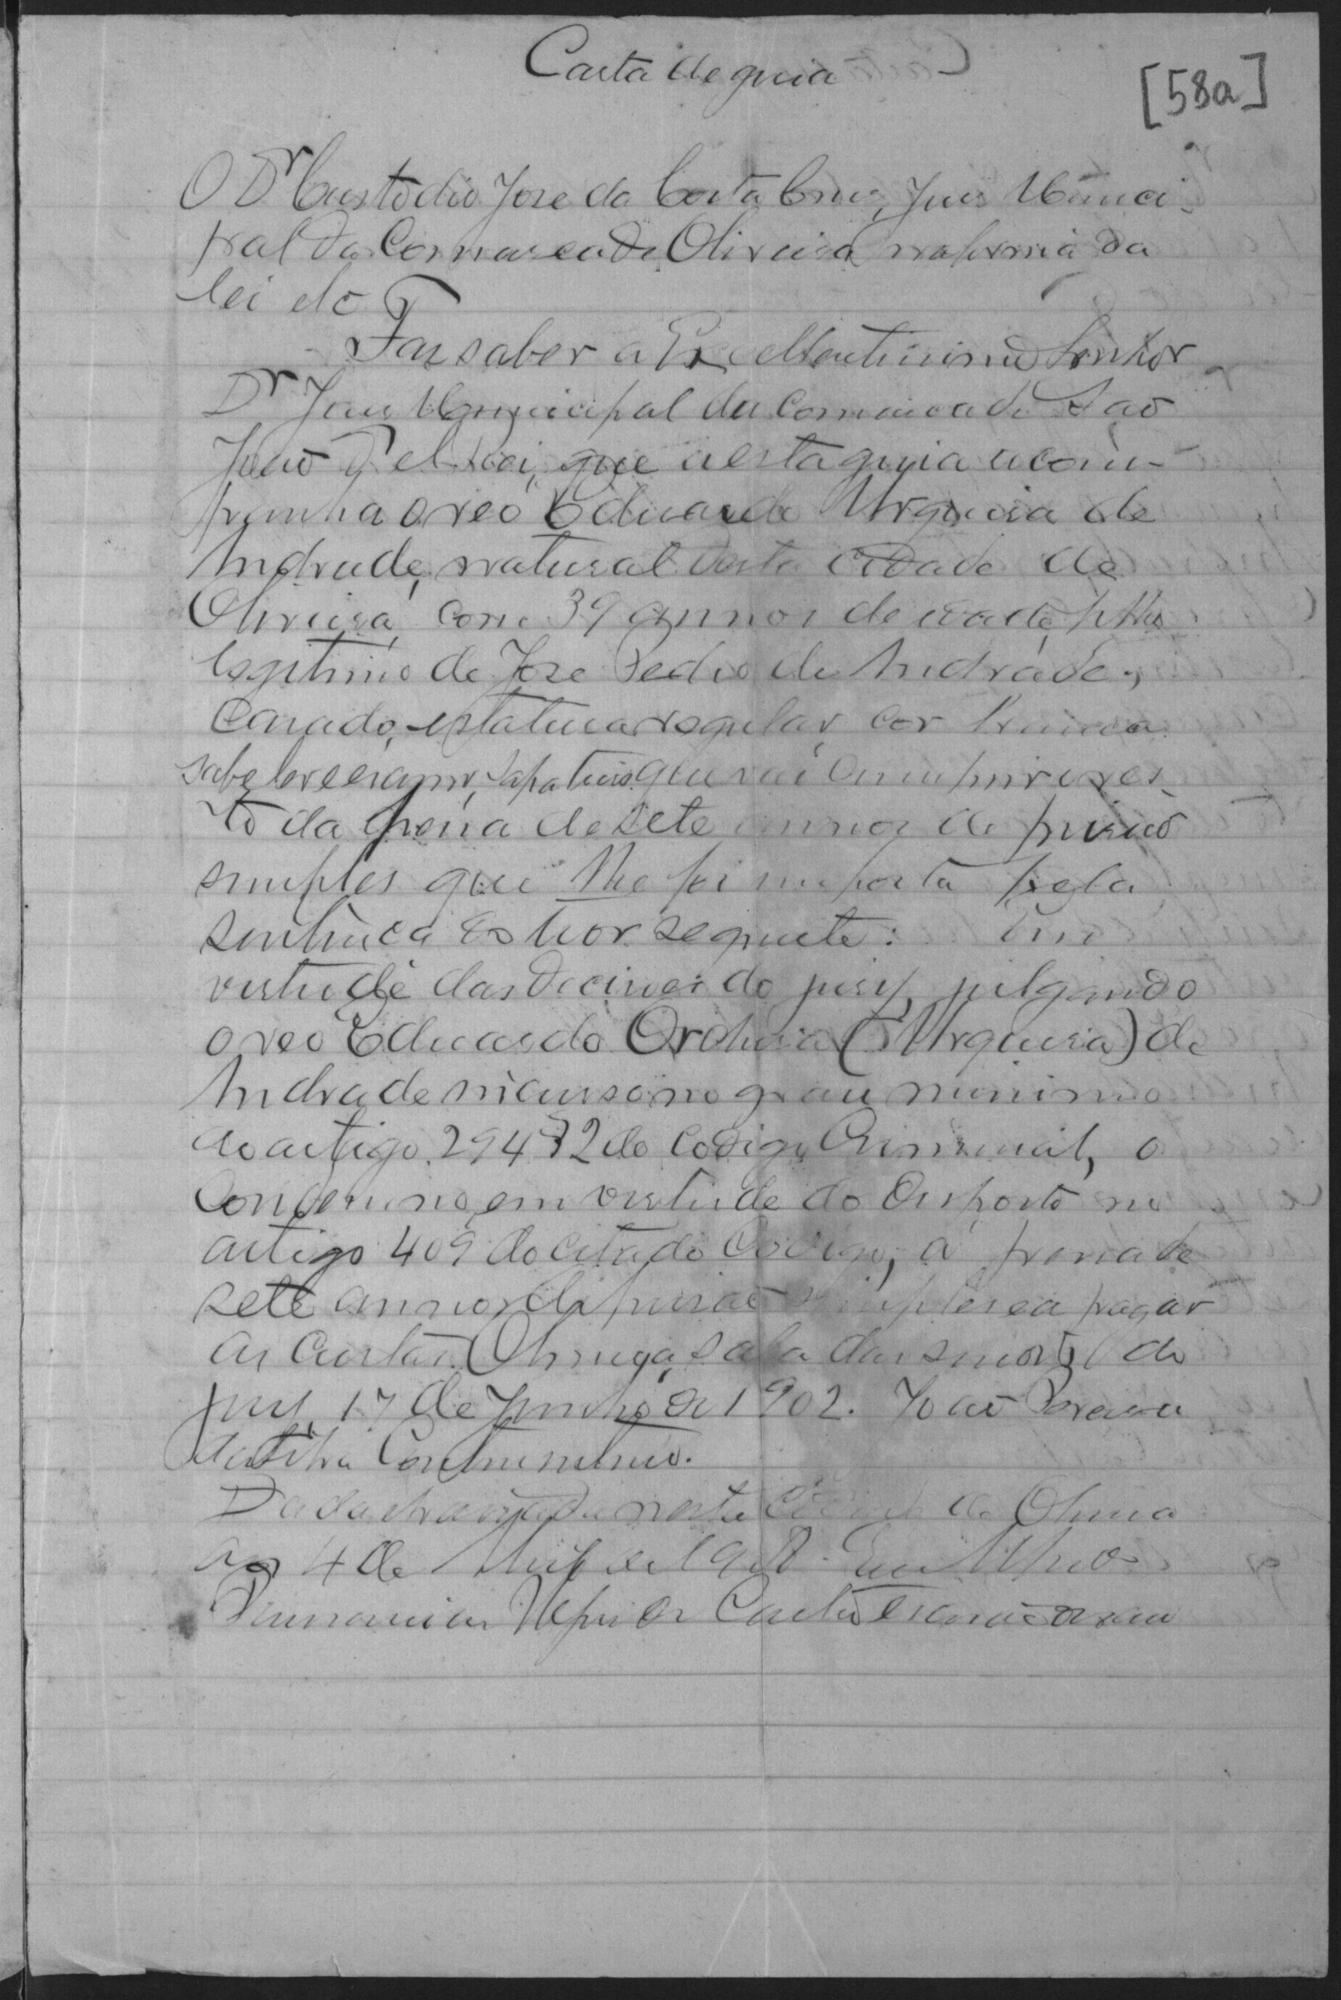 Carta de guia
[58a]
O Dr Custodio Jose da Costa Cruz, Juis Munici-
pal da Comarca de Oliveira na forma da
lei etc.
Faz saber a Excellentissimo Senhor
Dr Juis Municipal da comarca de Sao
João d'el Rei, que a esta guia acom-
panha o reo Eduardo Urquisia de
Andrade, natural desta cidade de
Oliveira, com 39 annos de idade, filho
legitimo de Jose Pedro de Andrade,
Casado, estatura regular, cor branca
sabe ler e escrever, sapateiro que vai cumprir o res-
to da pena de sete annos de prisão
simples que lhe foi imposta pela
sentença do theor seguinte: Em
virtude das decisões do jury, julgando
o reo Eduardo Orchisia (Urquisia) de
Andrade incurso no grau minimo
do artigo 294 § 2 do Codigo Criminal, o
Condemno, em virtude do disposto no
artigo 409 do citado Codigo, á pena de
sete annos de prisão simples e a pagar
as custas. Oliveira, sala das sessões do
jury 17 de Junho de 1902. João Pereira
da Silva Continentino.
Dada e passada nesta Cidade de Oliveira
aos 4 de de Eu
Castro escrivão